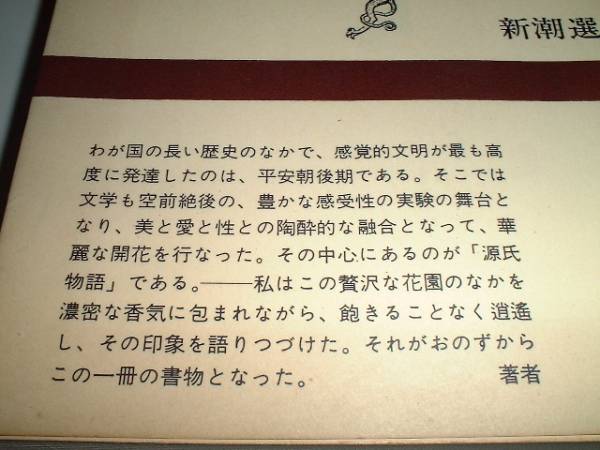 新潮選
わが国の長い歴史のなかで、感覚的文明が最も高
度に発達したのは、平安朝後期である。そこでは
文学も空前絶後の、豊かな感受性の実験の舞台と
なり、美と愛と性との陶酔的な融合となって、華
麗な開花を行なった。その中心にあるのが「源氏
物語」である。――私はこの贅沢な花園のなかを
濃密な香気に包まれながら、飽きることなく逍遙
し、その印象を語りつづけた。それがおのずから
この一冊の書物となった。 著者